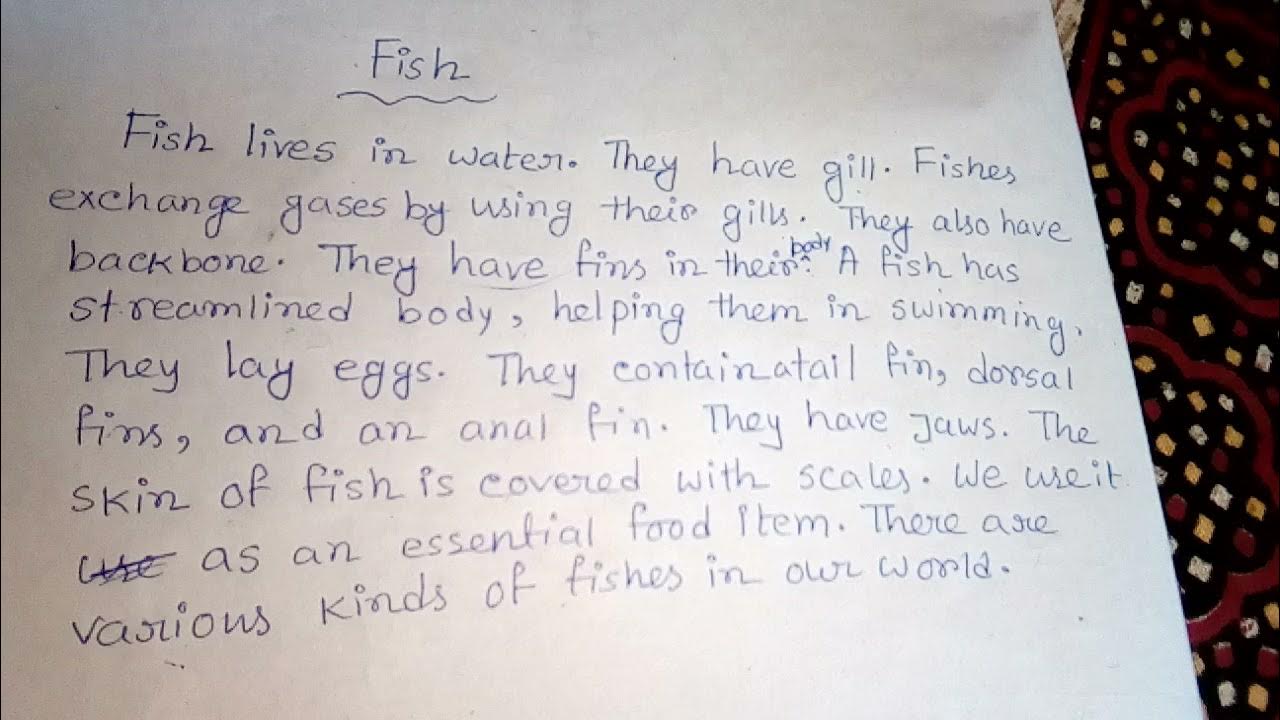 Fish
Fish lives in water. They have gill. Fishes
exchange gases by using their gills. They also have
backbone. They have fins in their body. A fish has
streamlined body, helping them in swimming.
They lay eggs. They contain a tail fin, dorsal
fins, and an anal fin. They have Jaws. The
skin of fish is covered with scales. We use it
as an essential food item. There are
various kinds of fishes in our world.